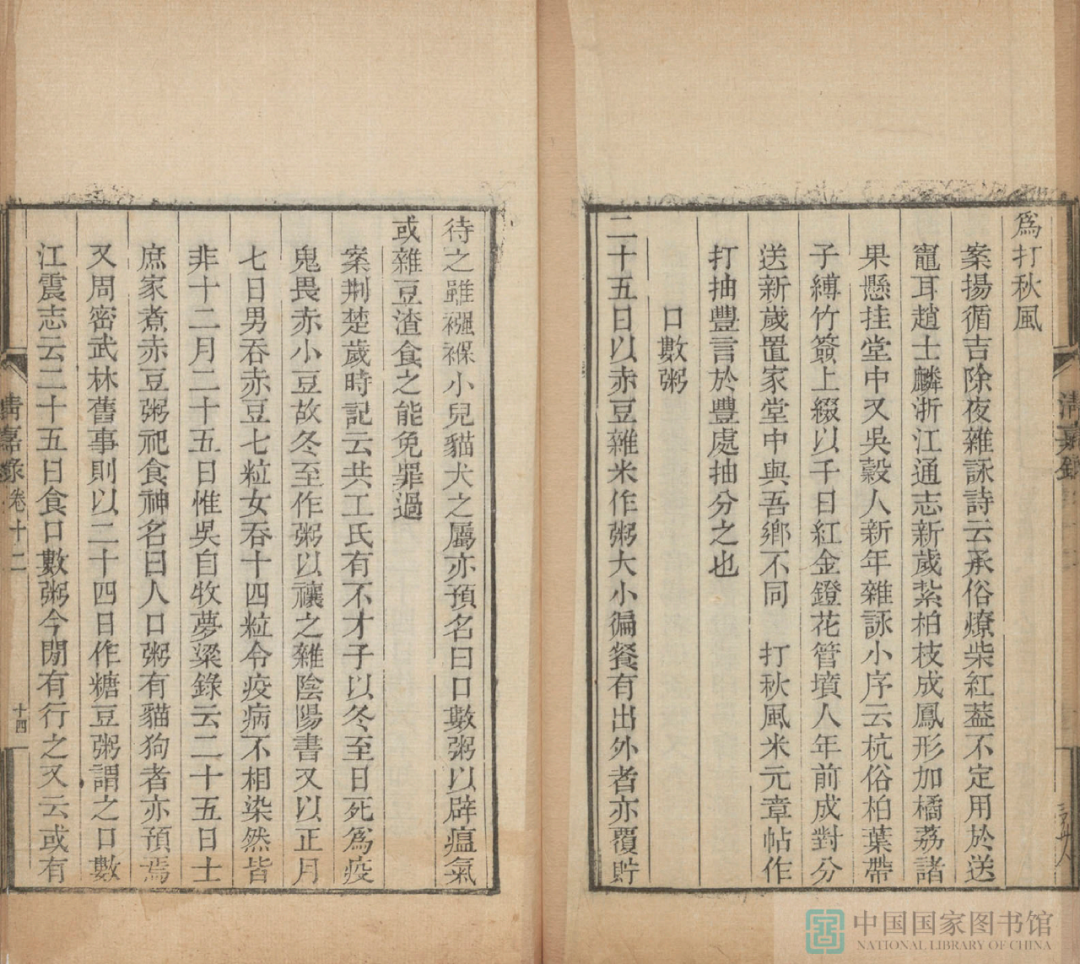 爲打秋風
案揚循吉除夜雜詠詩云承俗燎柴紅葢不定用於送
竈耳趙士麟浙江通志新歲紮柏枝成鳳形加橘荔諸
果懸挂堂中又吳穀人新年雜詠小序云杭俗柏葉帶
子縛竹簽上綴以千日紅金鐙花管墳人年前成對分
送新歲置家堂中與吾鄉不同　打秋風米元章帖作
打抽豐言於豐處抽分之也
口數粥
二十五日以赤豆雜米作粥大小徧餐有出外者亦覆貯
待之雖襁褓小兒貓犬之屬亦預名曰口數粥以辟瘟氣
或雜豆渣食之能免罪過
案荆楚歲時記云共工氏有不才子以冬至日死爲疫
鬼畏赤小豆故冬至作粥以禳之雜陰陽書又以正月
七日男吞赤豆七粒女吞十四粒令疫病不相染然皆
非十二月二十五日惟吳自牧夢粱錄云二十五日士
庶家煮赤豆粥祀食神名曰人口粥有貓狗者亦預焉
又周密武林舊事則以二十四日作糖豆粥謂之口數
江震志云二十五日食口數粥今閒有行之又云或有
清嘉錄
卷十二
十四
中国国家图书馆
NATIONAL LIBRARY OF CHINA